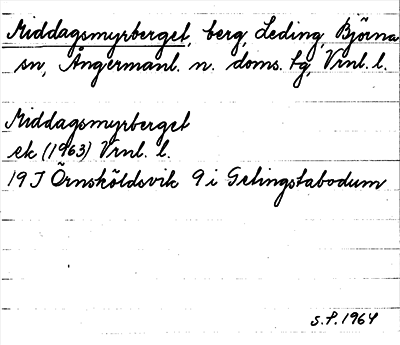 Middagsmyrberget, berg, Leding, Björna
sn, Ångermanl. n. doms. tg, Vrnl. l.
Middagsmyrberget
ek (1963) Vrnl. l.
19 J Örnsköldsvik 9 i Getingstabodum
S.P. 1964